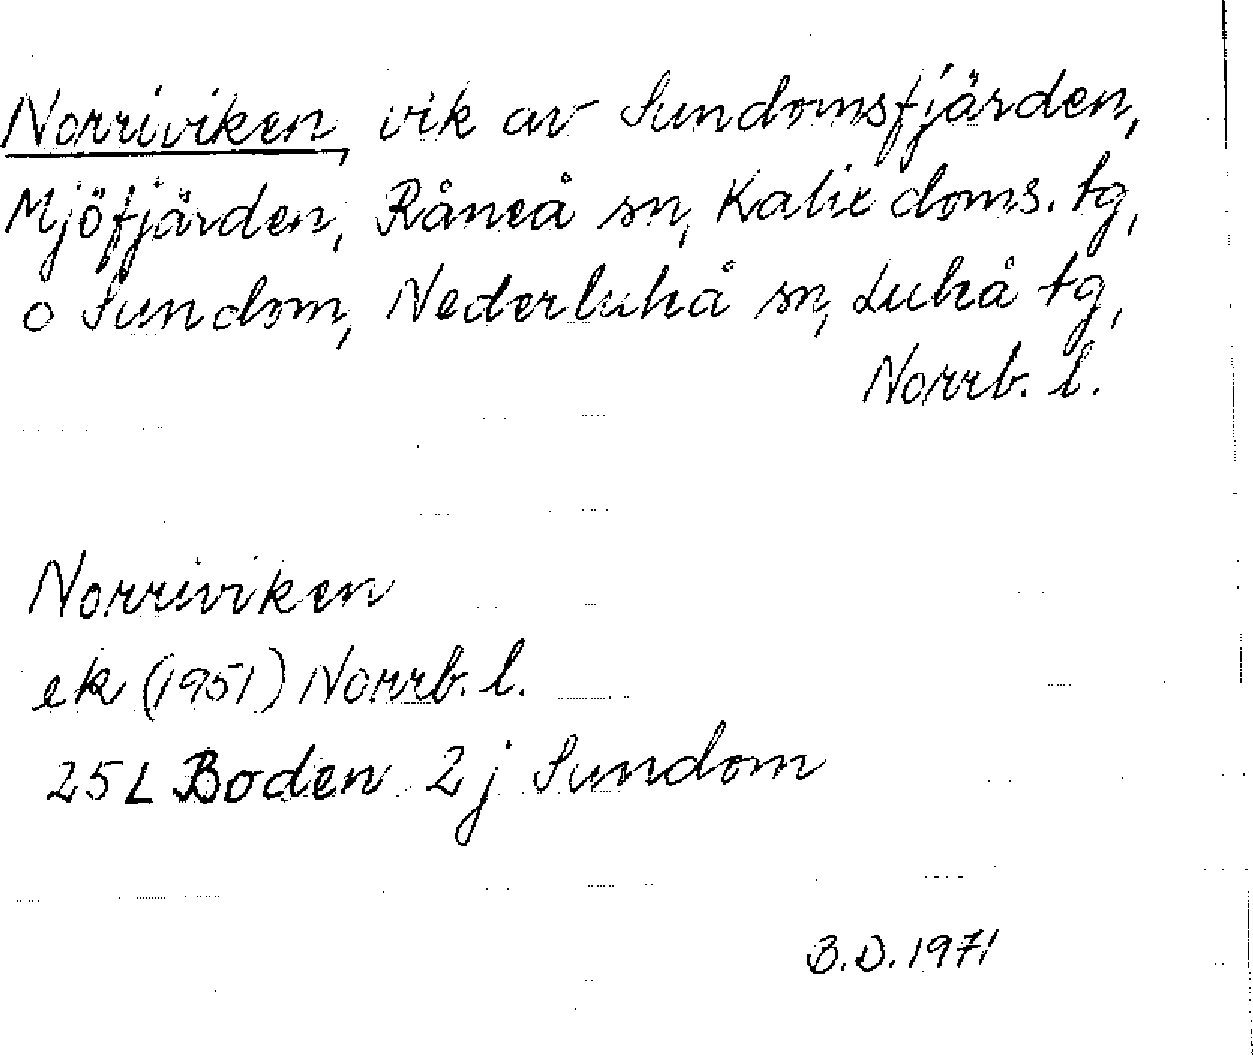 Norriviken, vik av Sundomsfjärden,
Mjöfjärden, Råneå sn, Kalix doms. tg,
o Sundom, Nederluleå sn, Luleå tg,
Norrb. l.
Norriviken
ek (1951) Norrb. l.
25 L Boden 2 j Sundom
B.D. 1971